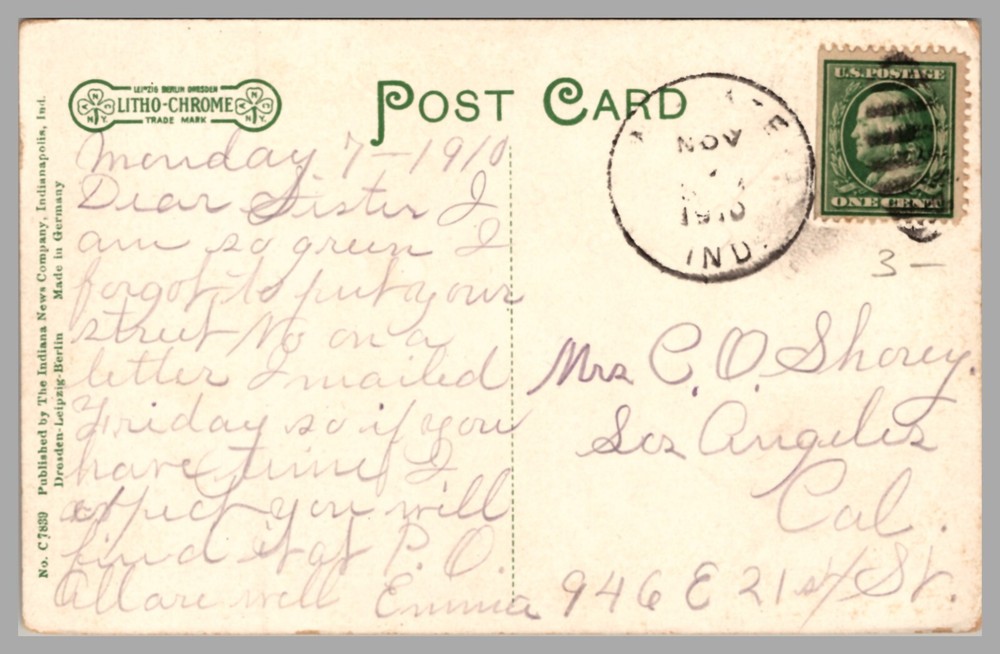 LEIPZIG BERLIN DRESDEN
LITHO-CHROME
TRADE MARK
N Y
N Y
POST CARD
U.S. POSTAGE
ONE CENT
NOV
1910
IND.
3 —
No. C 7839 Published by The Indiana News Company, Indianapolis, Ind.
Dresden-Leipzig-Berlin Made in Germany
Monday 7 – 1910
Dear Sister I
am so green I
forgot to put your
street No on a
letter I mailed
Friday so if you
have time I
expect you will
find it at P. O.
All are well Emma
Mrs C. O. Shorey.
Los Angeles
Cal.
946 E 21st St.